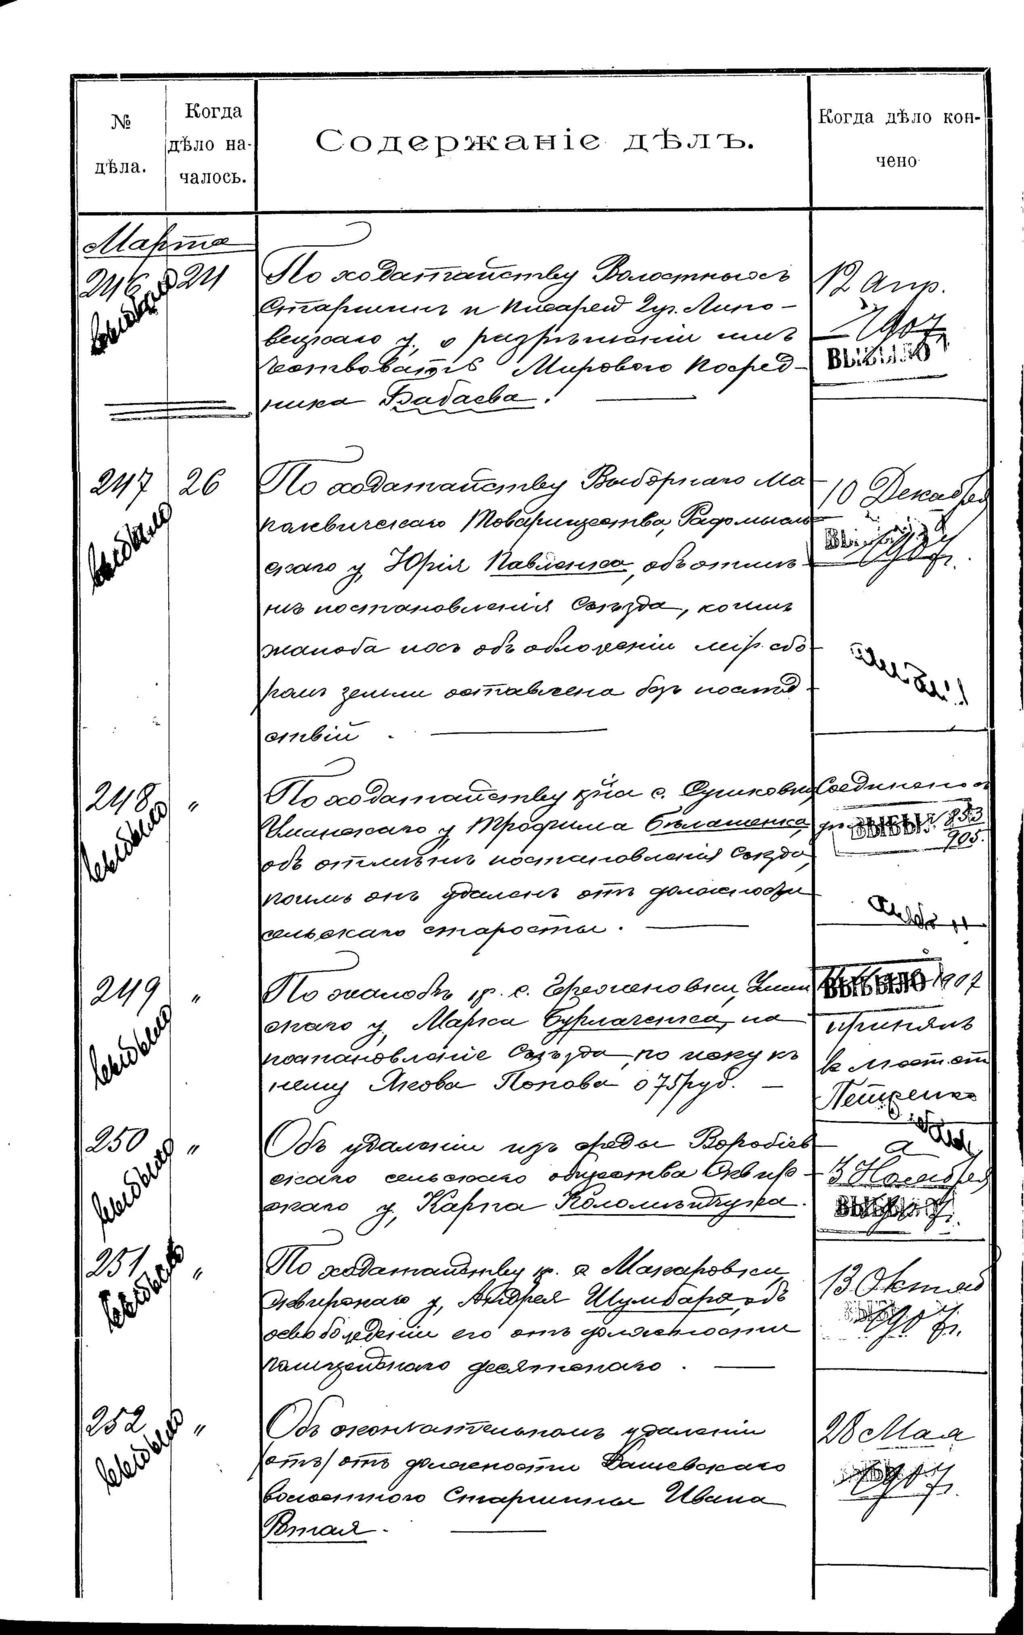 № дѣла.
Когда дѣло началось.
Содержаніе дѣлъ.
Когда дѣло кончено
Марта
246 24
По ходатайству Волостныхъ
Старшинъ и Писарей 2 уч. Липо-
вецкаго у, о разрѣшеніи имъ
чествовать Мирового Посред-
ника Бабаева.
12 Апр.
1907
ВЫБЫЛО
выбыло
247 26
По ходатайству Выборнаго Ма-
каквичскаго Товарищества, Радомысль-
скаго у, Юрія Павленка, объ отмѣ-
нѣ постановленія Съѣзда, коимъ
жалоба ихъ объ обложеніи мір. сбо-
ромъ земли оставлена безъ послѣд-
ствій.
10 Декабря
1907 г.
выбыло
248 "
По ходатайству кр-на с. Сушковки,
Уманскаго у, Трофима Бѣлашенка,
объ отмѣнѣ постановленія Съѣзда,
коимъ онъ удаленъ отъ должности
сельскаго старосты.
Соединено съ
ВЫБЫЛО 853
905.
выбыло
249 "
По жалобѣ кр. с. Уман-
скаго у, Марка Бурлаченка, на
постановленіе Съѣзда, по иску къ
нему Якова Попова о 75 руб.
ВЫБЫЛО 1907
принялъ
Петренко
выбыло
250 "
Объ удаленіи изъ среды Воробіев-
скаго сельскаго общества Сквир-
скаго у, Карпа Коломѣйчука.
3 Ноября
1907 г.
ВЫБЫЛО
выбыло
251 "
По ходатайству кр. с. Макаровки,
Сквирскаго у, Андрея Шумбара, объ
освобожденіи его отъ должности
полицейскаго десятскаго.
13 Октяб
1907 г.
выбыло
252 "
Объ окончательномъ удаленіи
/отъ/ отъ должности Дашевскаго
волостного Старшины Ивана
Втая.
28 Мая
1907 г.
выбыло